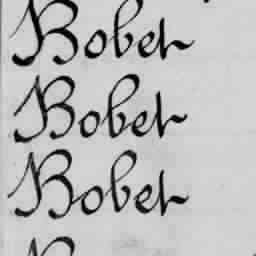 Bober
Bober
Bober